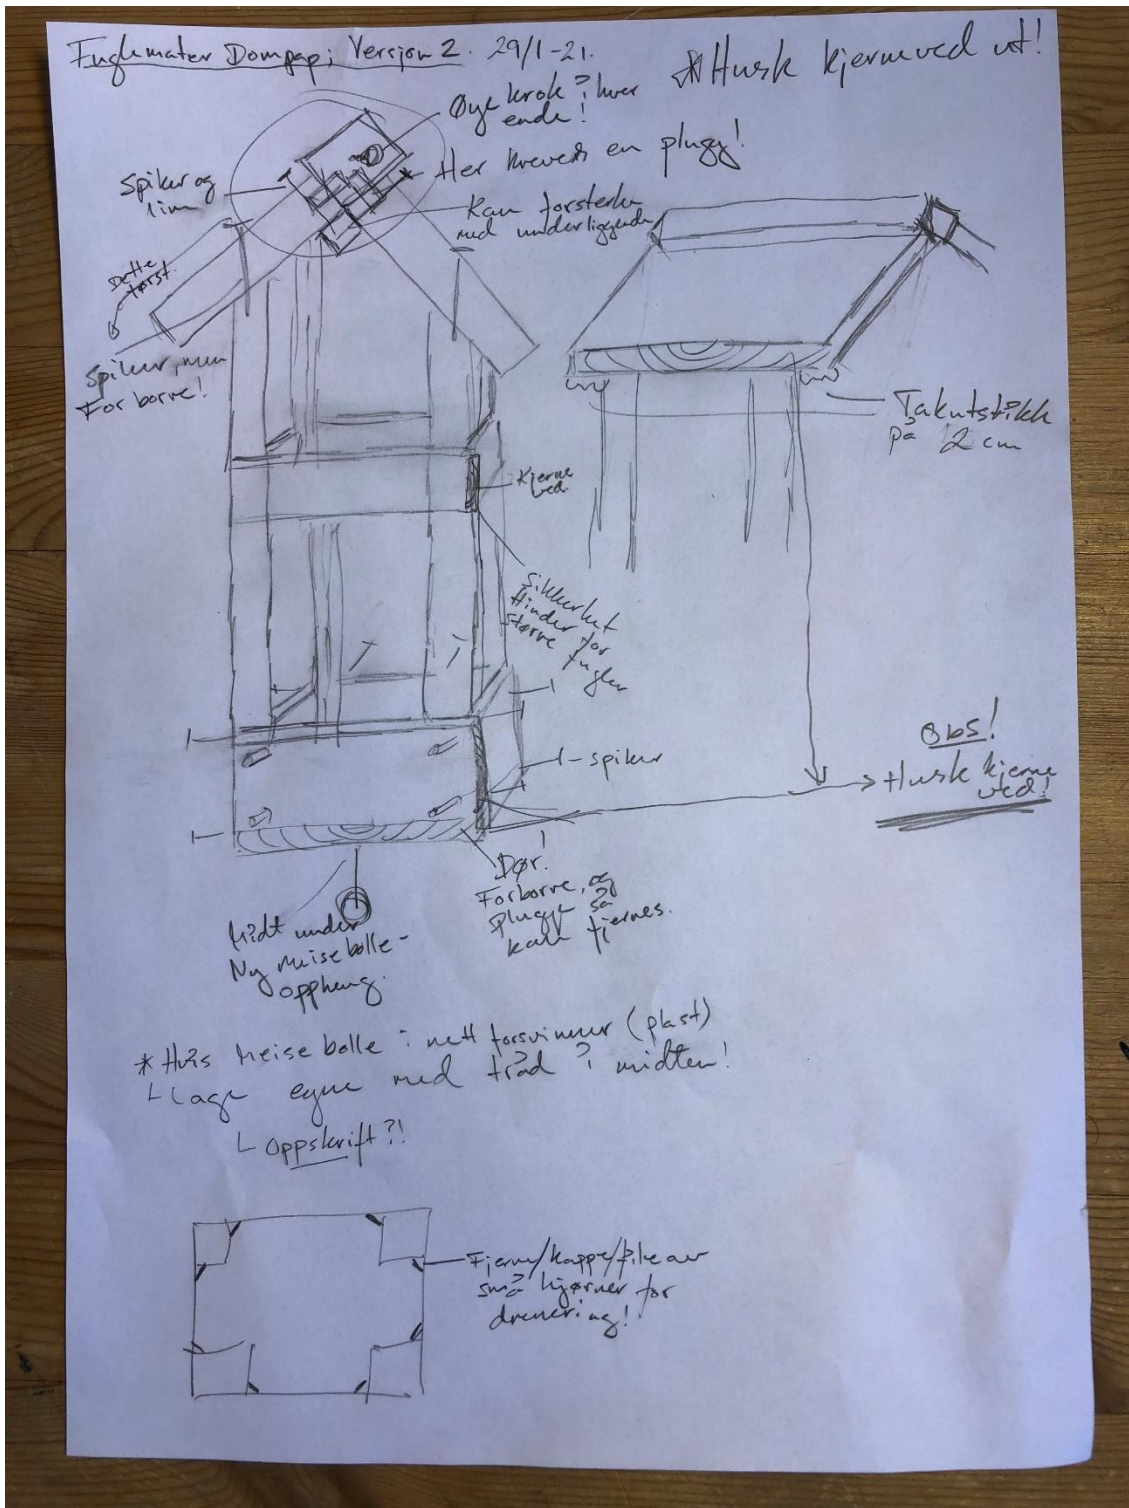 Fuglemater Dompap; Versjon 2. 29/1-21.
* Husk kjerneved ut!
Øyekrok i hver
ende!
Her kreves en plugg!
Spiker og
lim
Kan forsterke
med underliggende
Dette
først.
Spiker, men
Forborre!
Takutstikk
på 2 cm
Kjerne
ved
Sikkerhet
Hinder for
større fugler
1-spiker
Obs!
Husk kjerne
ved!
Dør!
Forborre, og
plugge så
kan fjernes.
Midt under
Ny meisebolle-
oppheng.
* Hvis Meisebolle i nett forsvinner (plast)
└ Lage egne med tråd i midten!
└ Oppskrift?!
Fjerne/kappe/file av
små hjørner for
drenering!